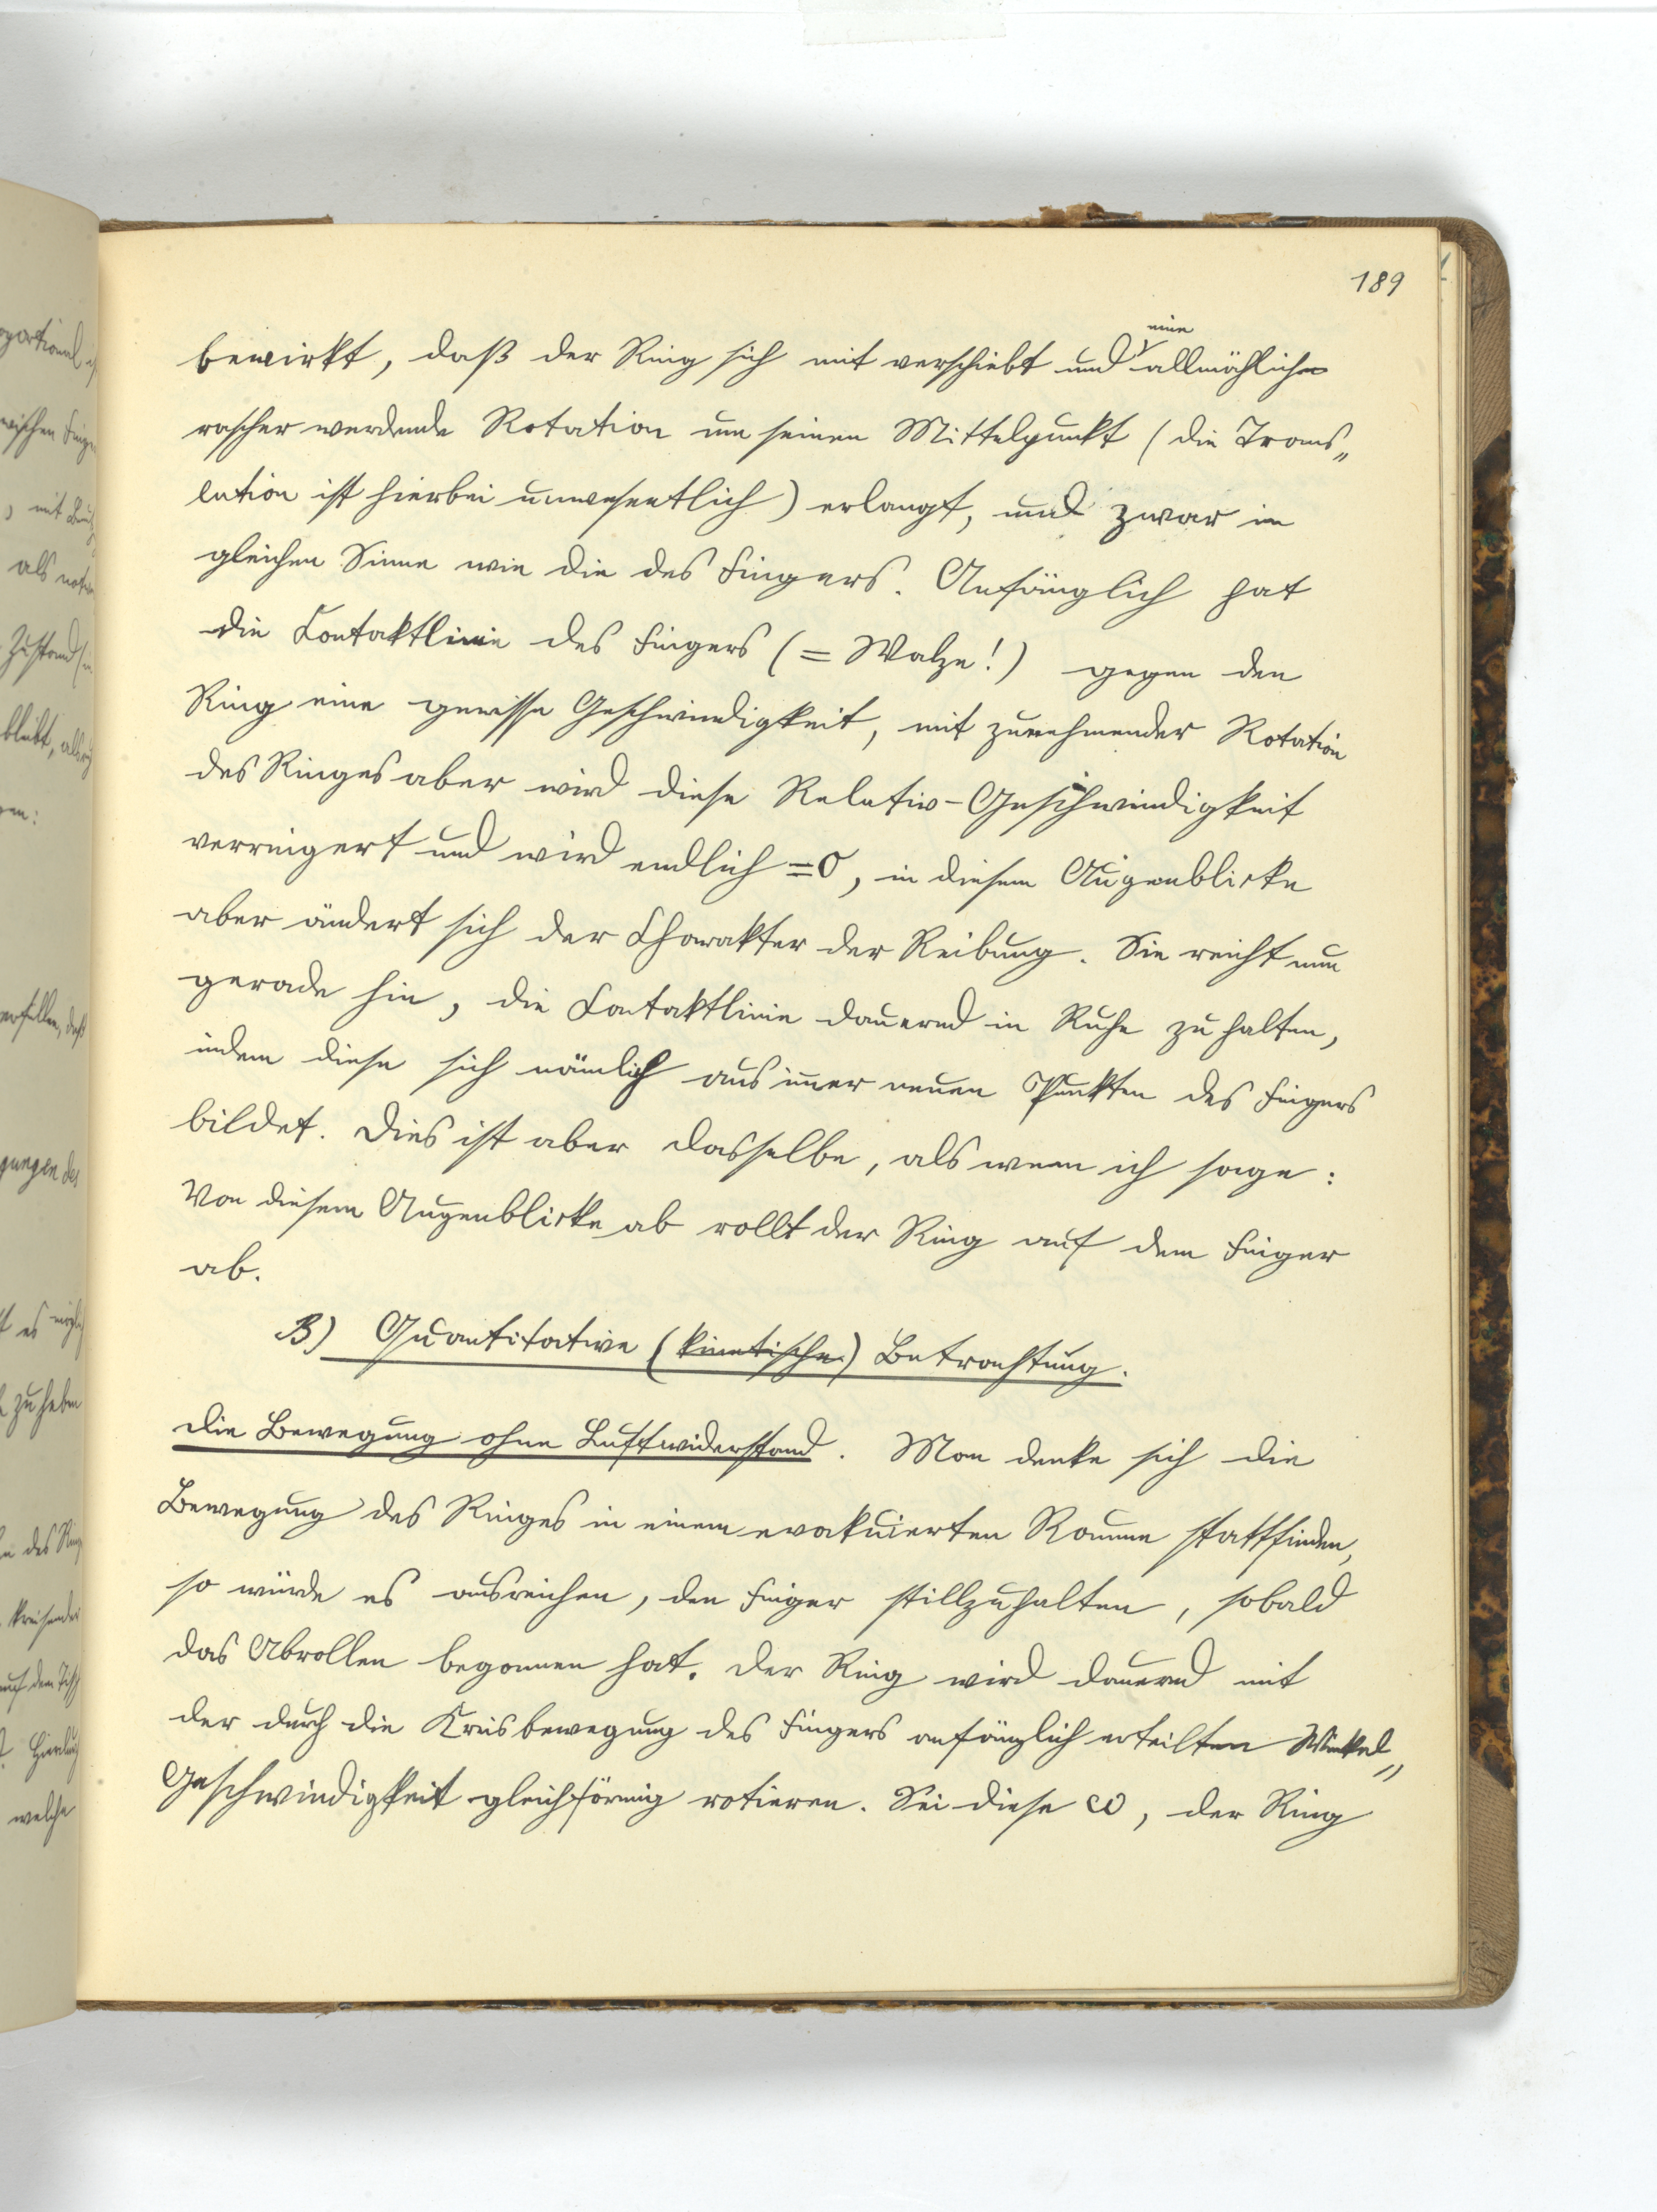 189
bewirkt, daß der Ring sich mit verschiebt und eine allmählich
rascher werdende Rotation um seinen Mittelpunkt (die Trans„
lation ist hierbei unwesentlich) erlangt, und zwar im
gleichen Sinne wie die des Fingers. Anfänglich hat
die Contaktlinie des Fingers (= Walze!) gegen den
Ring eine gewisse Geschwindigkeit, mit zunehmender Rotation
des Ringes aber wird diese Relativ-Geschwindigkeit
verringert und wird endlich =0, in diesem Augenblicke
aber ändert sich der Charakter der Reibung. Sie reicht nun
gerade hin, die Contaktlinie dauernd in Ruhe zu halten,
indem diese sich nämlich aus immer neuen Punkten des Fingers
bildet. Dies ist aber dasselbe, als wenn ich sage:
Von diesem Augenblicke ab rollt der Ring auf dem Finger
ab.
B) Quantitative (kinetische) Betrachtung.
Die Bewegung ohne Luftwiderstand. Man denke sich die
Bewegung des Ringes in einem evakuierten Raume stattfinden,
so würde es ausreichen, den Finger stillzuhalten, sobald
das Abrollen begonnen hat. Der Ring wird dauernd mit
der durch die Kreisbewegung des Fingers anfänglich erteilten Winkel„
Geschwindigkeit gleichförmig rotieren. Sei diese ω, der Ring